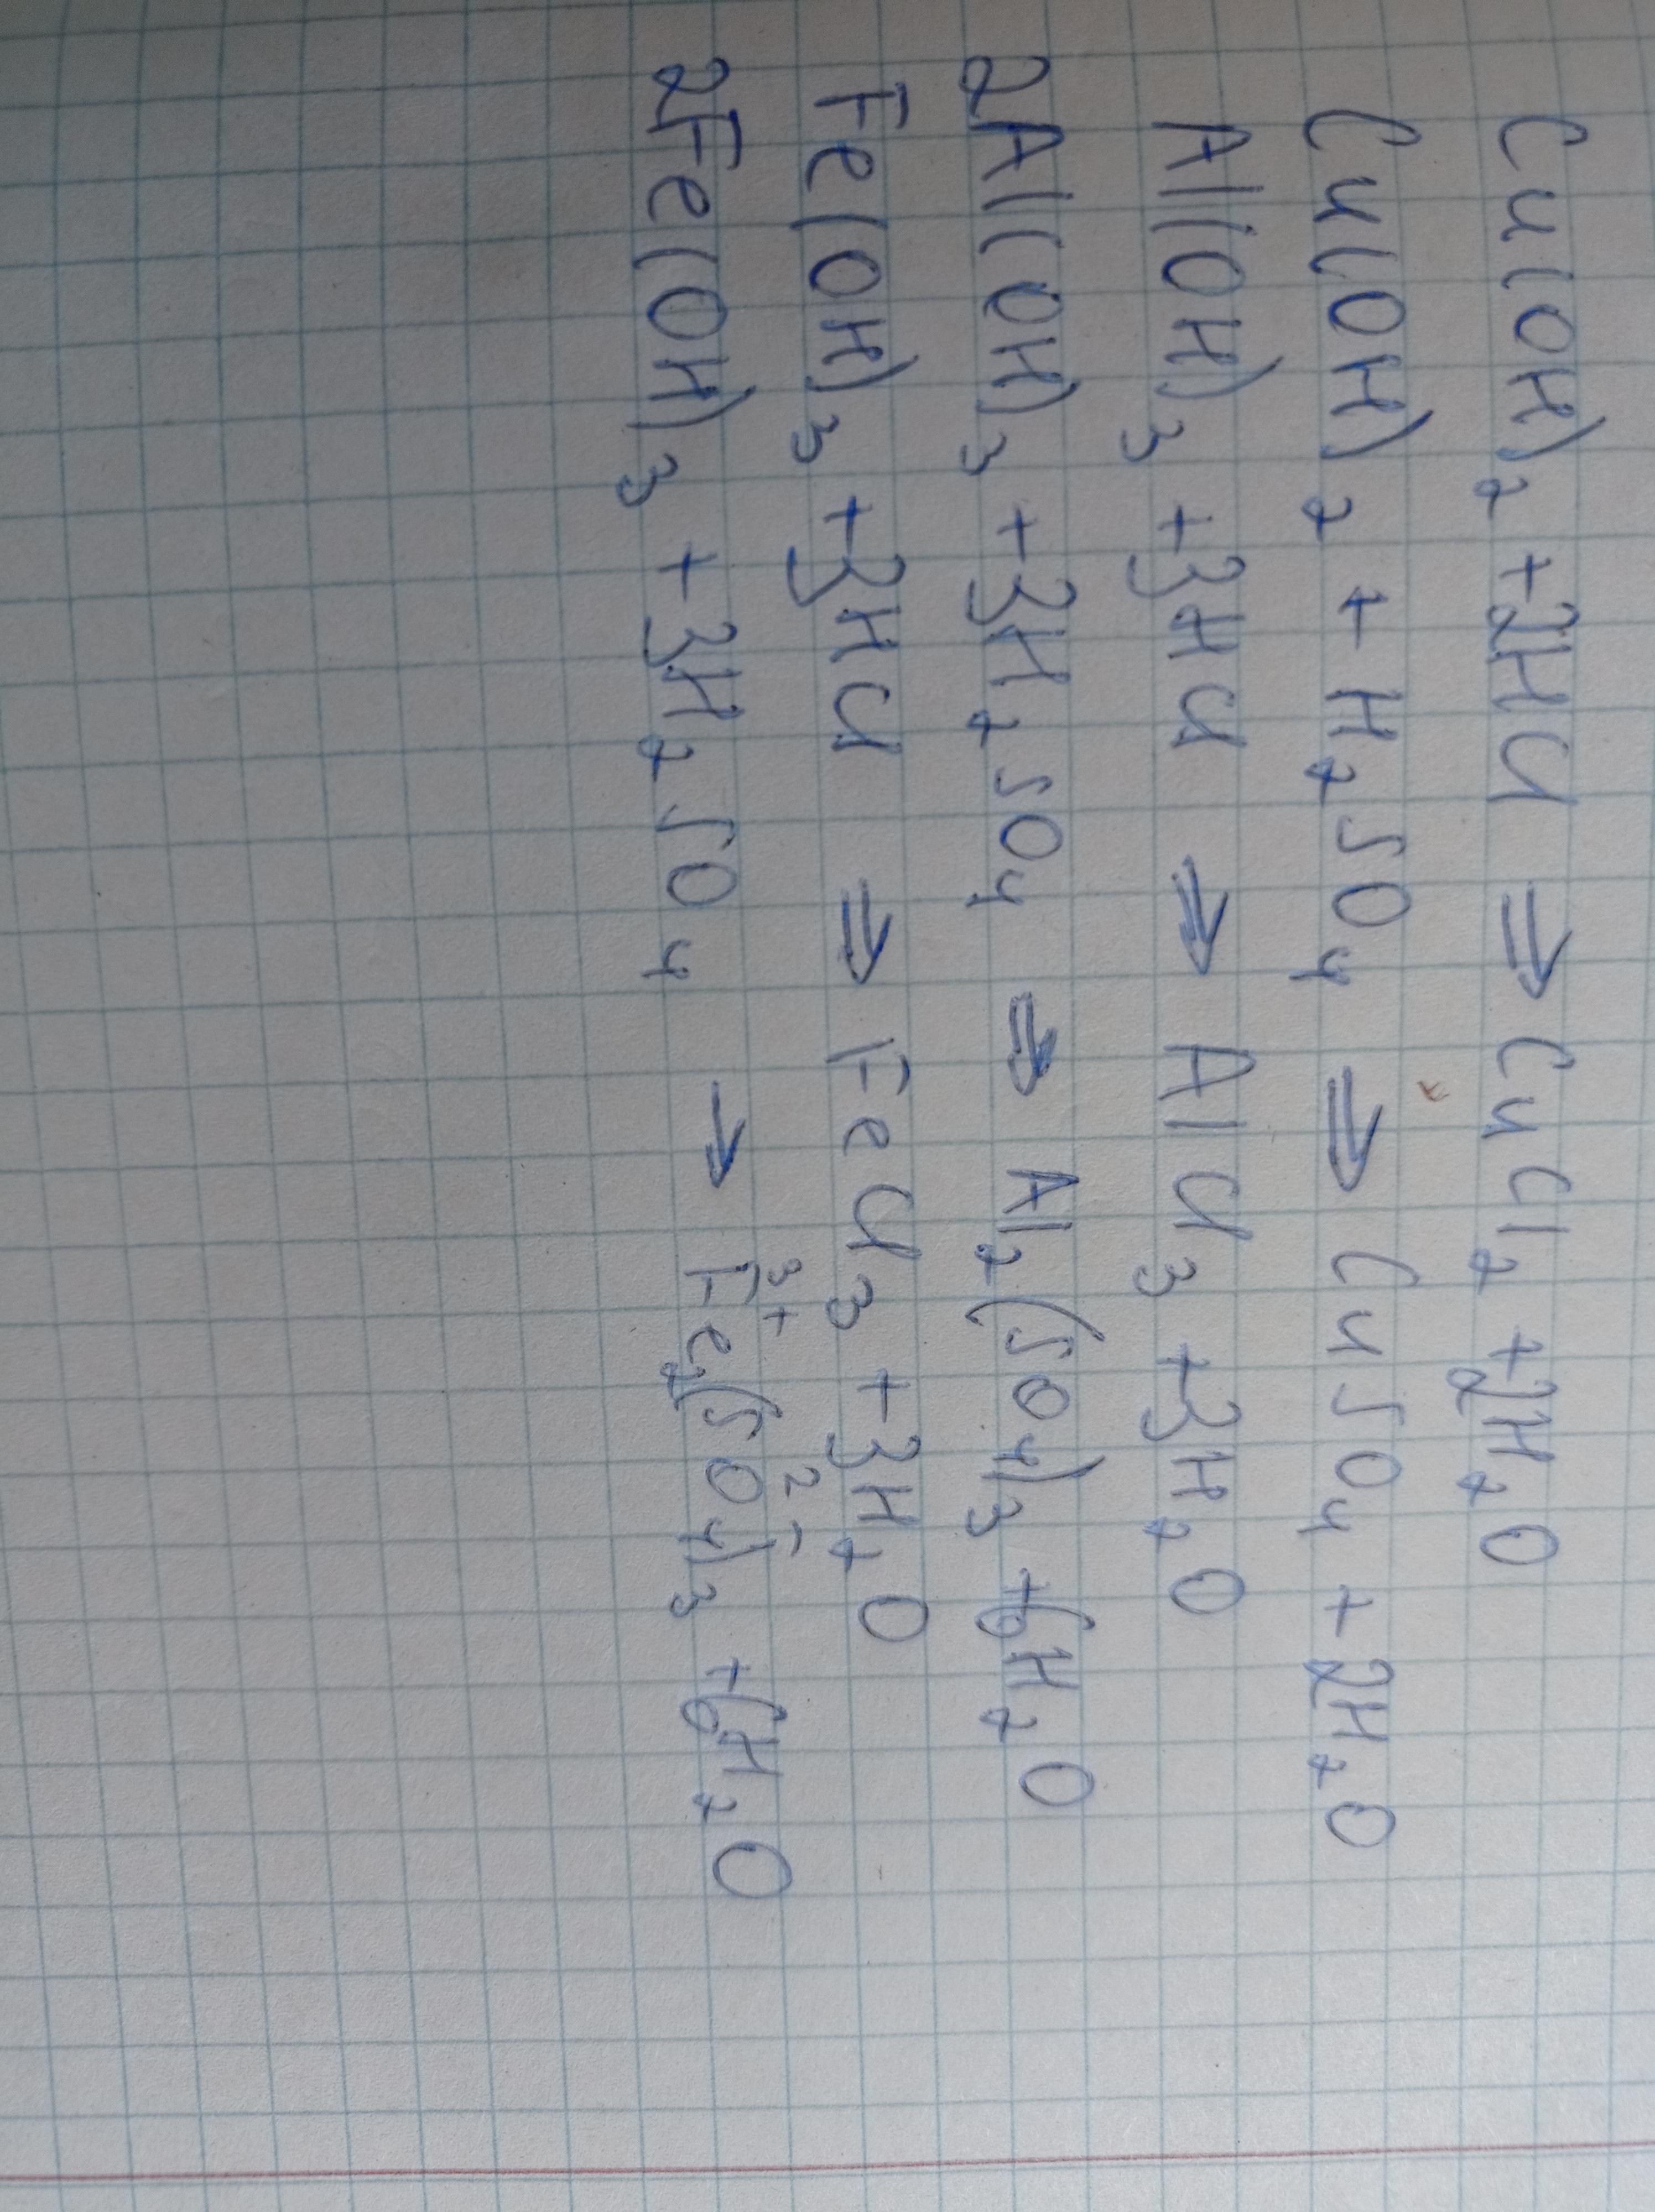 Cu(OH)₂ +2HCl ⇒ CuCl₂ +2H₂O
Cu(OH)₂ + H₂SO₄ ⇒ CuSO₄ + 2H₂O
Al(OH)₃ +3HCl ⇒ AlCl₃ +3H₂O
2Al(OH)₃ +3H₂SO₄ ⇒ Al₂(SO₄)₃ +6H₂O
Fe(OH)₃ +3HCl ⇒ FeCl₃ + 3H₂O
2Fe(OH)₃ +3H₂SO₄ → Fe₂³⁺(SO₄)₃²⁻ +6H₂O